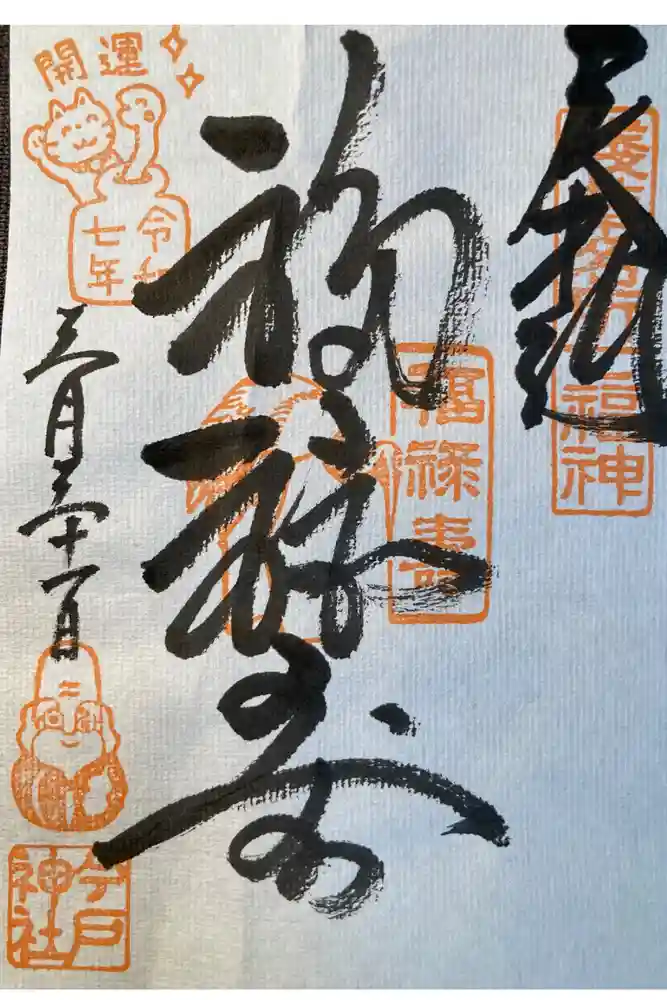 奉拝
福禄寿
福禄寿
開運
令和
七年
三月三十一日
今戸
神社